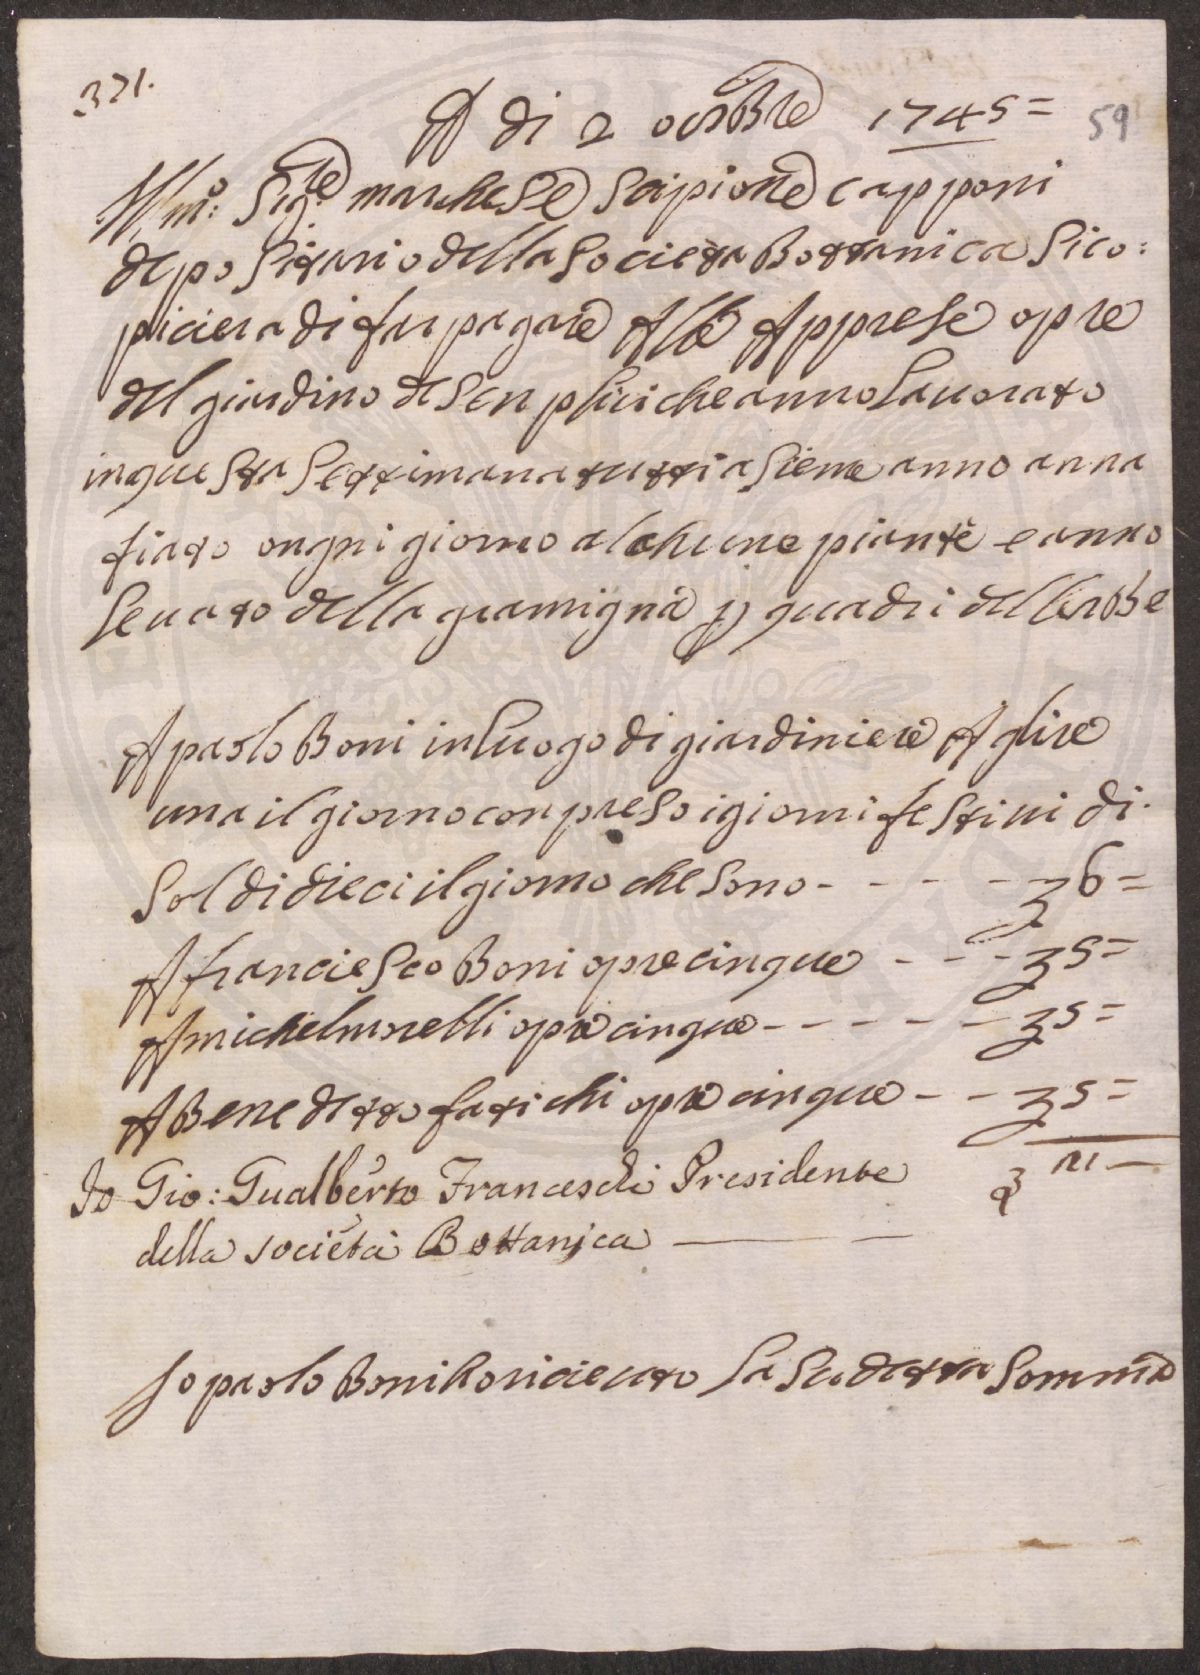 371.
A di 2 ottobre 1745= 59
Ill.mo Sig.re marchese Scipione capponi
depositario della Societa Bottanica Si co:
piaciera di far pagare Alle Apprese opre
del giardino de Senplici che anno lauorato
in questa Settimana tutti asieme anno anna
fiato ongni giorno alchune piante e anno
leuato della gramigna p quadri dellerbe
A paolo Boni in luogo di giardiniere A lire
una il giorno conpreso i giorni festiui di
Soldi dieci il giorno che Sono - - - - 6=
A franciesco Boni opre cinque - - - 5=
A michel morelli opre cinque - - - - - 5=
A Benedetto fatichi opre cinque - - 5=
Io Gio: Gualberto Franceschi Presidente 21 —
della società Bottanica
Io paolo Boni ho riceuto la Sudetta Somma